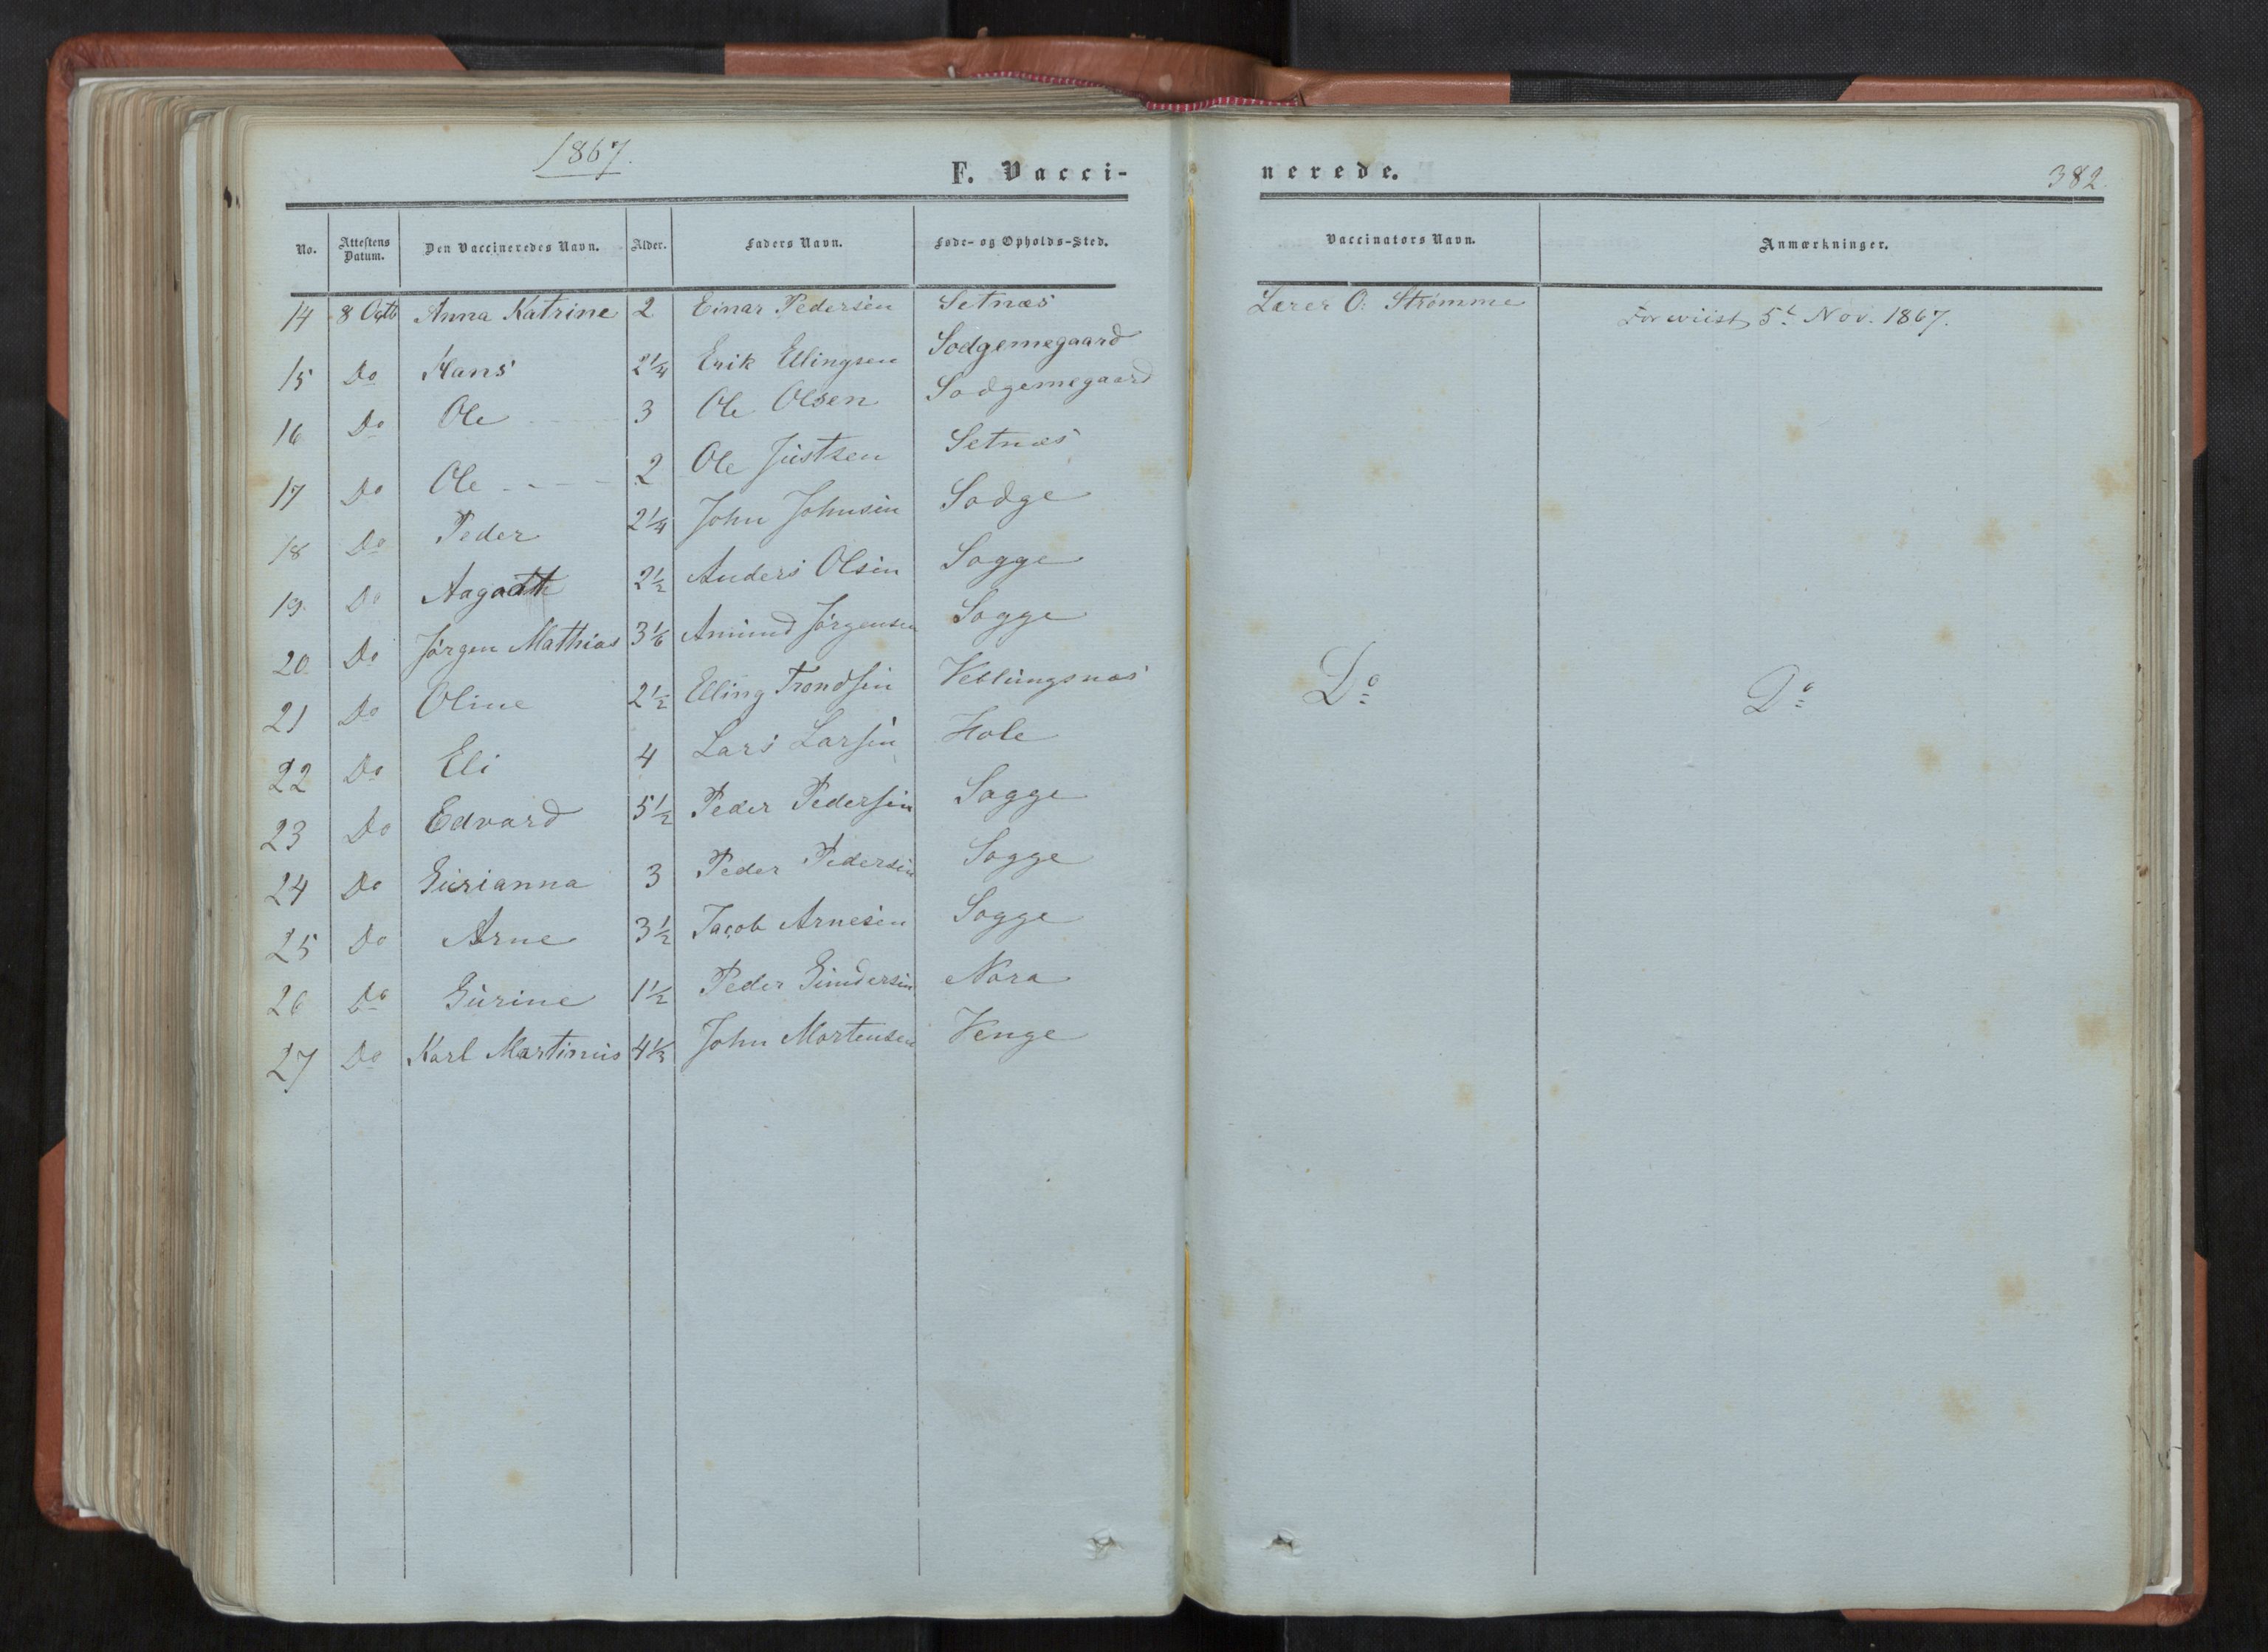 1867.
F. Vacci-
nerede.
382.
No. Attestens Datum. Den Vaccineredes Navn. Alder. Faders Navn. Føde- og Opholds-Sted. Vaccinators Navn. Anmærkninger.
14 8 Octb Anna Katrine 2 Einar Pedersen Setnæs Lærer O: Strømme Foreviist 5t Nov. 1867.
15 Do Hans 2 1/4 Erik Ellingsen Sodgemegaard
16 Do Ole 3 Ole Olsen Sodgemegaard
17 Do Ole 2 Ole Justsen Setnæs
18 Do Peder 2 1/4 John Johnsen Sodge
19. Do Aagadth 2 1/2 Anders Olsen Sogge
20. Do Jørgen Mathias 3 1/6 Amund Jørgensen Sogge
21 Do Oline 2 1/2 Elling Trondsen Veblungsnæs Do Do
22 Do Eli 4 Lars Larsen Hole
23 Do Edvard 5 1/2 Peder Pedersen Sogge
24 Do Gurianna 3 Peder Pedersen Sogge
25 Do Arne 3 1/2 Jacob Arnesen Sogge
26 Do Gurine 1 1/2 Peder Gundersen Nora
27 Do Karl Martinus 4 1/3 John Mortensen Venge